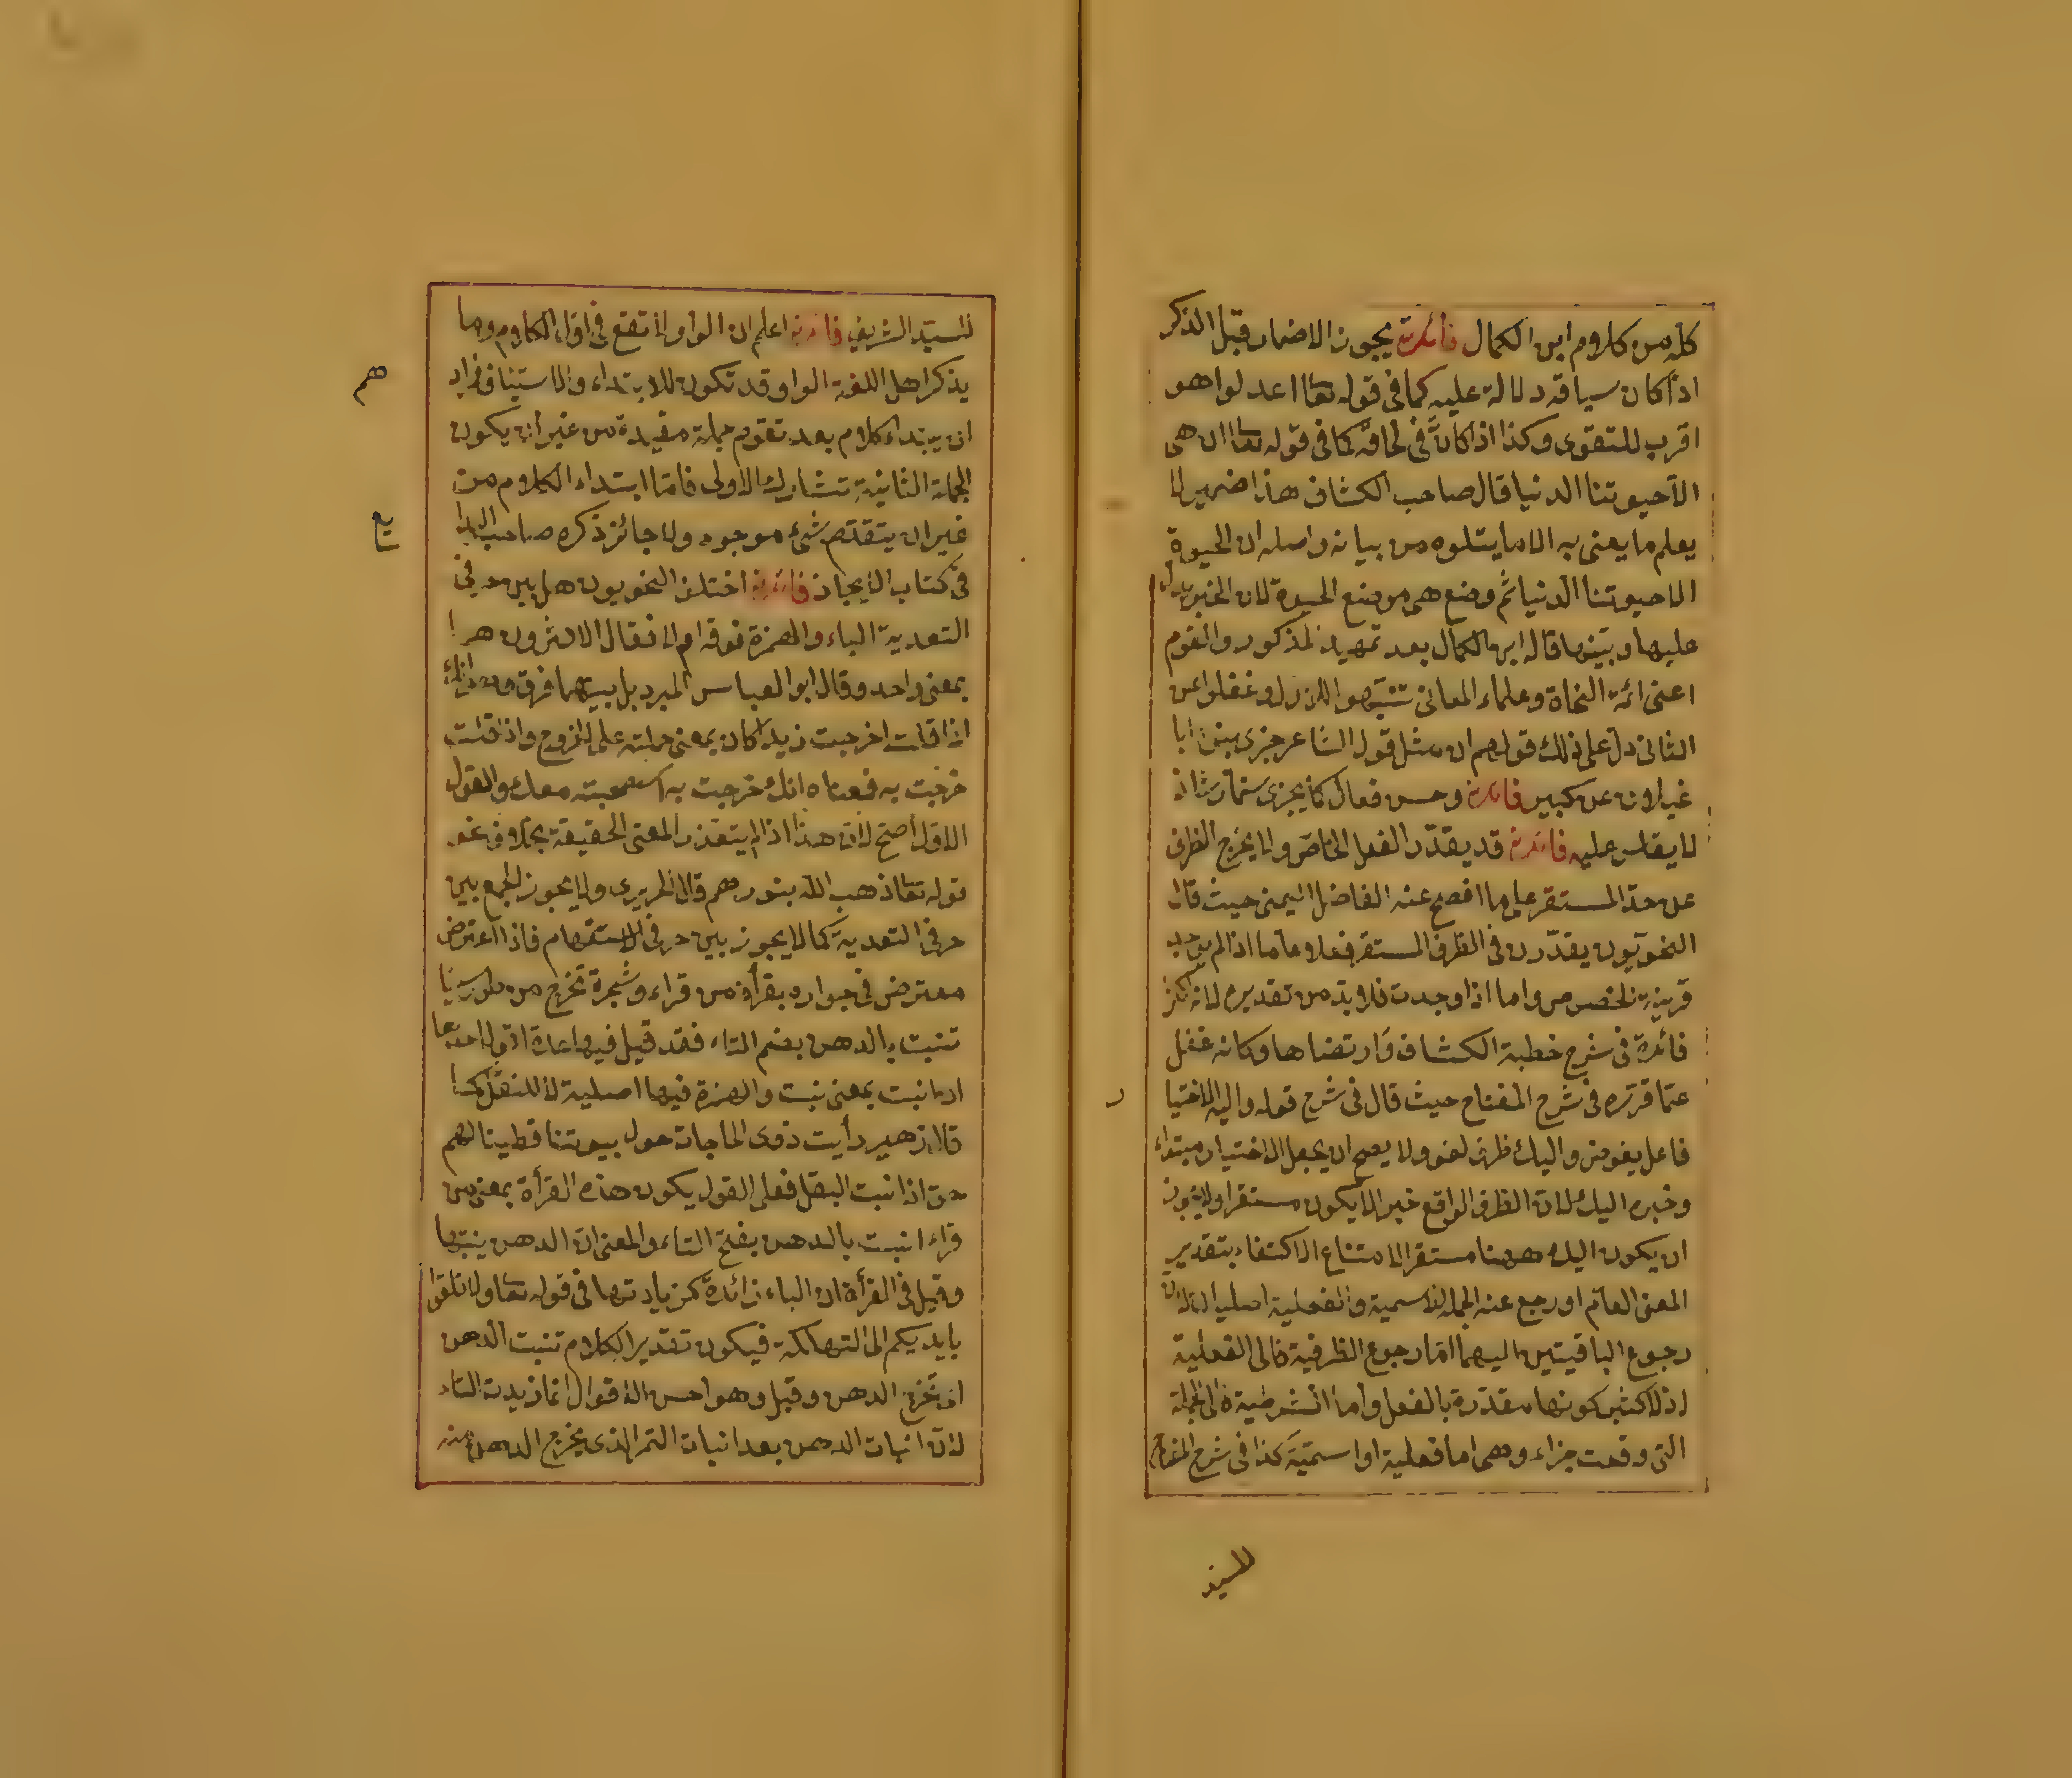 كله من كلام ابن الكمال فائدة يجوز الاضمار قبل الذكر
اذا كان سياقه دلالة عليه كما فى قوله تعا اعدلوا هو
اقرب للتقوى وكذا اذا كان فى لحاقه كما فى قوله تعا ان هى
الا حيوتنا الدنيا قال صاحب الكشاف هذا ضمير لا
يعلم ما يعنى به الا ما يتلوه من بيانه واصله ان الحيوة
الا حيوتنا الدنيا ثم وضع هى موضع الحيوة لان الخبر يدل
عليها ويبينها قاله ابن الكمال بعد تمهيد المذكور والقوم
اعنى ائمة النحاة وعلماء المعانى تنبهوا للاول وغفلوا عن
الثانى دل على ذلك قولهم ان مثل قول الشاعر جزى بنوه ابا
غيلان عن كبير فائدة وحسن فعال كما يجزى سنمار شاذ
لا يقاس عليه فائدة قد يقدر الفعل الخاص ولا يخرج الظرف
عن حد المستقر على ما افصح عنه الفاضل اليمنى حيث قال
النحويون يقدرون فى الظرف المستقر فعلا عاما اذا لم يوجد
قرينة الخصوص واما اذا وجدت فلا بد من تقديره لانه اكثر
فائدة فى شرح خطبة الكشاف وارتضاها وكانه غفل
عما قرره فى شرح المفتاح حيث قال فى شرح قوله واليه الاختيا
فاعل يفوض واليك ظرف لغو ولا يصح ان يجعل الاختيار مبتداء
وخبره اليك لان الظرف الواقع خبرا لا يكون مستقرا ولا يجوز
ان يكون اليك ههنا مستقرا لامتناع الاكتفاء بتقدير
المعنى العام او رجع عنه الجملة الاسمية والفعلية اصليا لان
رجوع الباقيتين اليهما اما رجوع الظرفية فالى الفعلية
اذ الاكثر كونها مقدرة بالفعل واما الشرطية فالى الجملة
التى وقعت جزاء وهى اما فعلية او اسمية كذا فى شرح المفتاح
للسيد
للسيد الشريف فائدة اعلم ان الواو لا تقع فى اول الكلام وما
يذكر اهل اللغة الواو قد تكون للابتداء والاستيناف فمراد
هم
ان يبتداء كلام بعد تقدم جملة مفيدة من غير ان يكون
الجملة الثانية تشارك الاولى فاما ابتداء الكلام من
غير ان يتقدم شئ موجود ولا جائز ذكره صاحب البدا
يع
فى كتاب الايجاز فائدة اختلف النحويون هل بين حرفى
التعدية الباء والهمزة فرق ام لا فقال الاكثرون هما
بمعنى واحد وقال ابو العباس المبرد بل بينهما فرق وهو انك
اذا قلت اخرجت زيدا كان بمعنى حملته على الخروج واذا قلت
خرجت به فمعناه انك خرجت به استصحبته معك والقول
الاول اصح لان هذا اذا لم يتعذر المعنى الحقيقة بخلاف نحو
قوله تعا ذهب الله بنورهم قال الحريرى ولا يجوز الجمع بين
حرفى التعدية كما لا يجوز بين حرفى الاستفهام فاذا اعترض
معترض فى جوازه بقرأة من قراء وشجرة تخرج من طور سينا
تنبت بالدهن بضم التاء فقد قيل فيها عدة اقوال احدها
ان انبت بمعنى نبت والهمزة فيها اصلية لا للنقل كما
قال زهير رأيت ذوى الحاجات حول بيوتنا قطينا لهم
حتى اذا انبت البقل فعلى القول يكون هذه القرأة بمعنى من
قراء انبت بالدهن بفتح التاء والمعنى ان الدهن ينبتها
وقيل فى القرأة ان الباء زائدة كزيادتها فى قوله تعا ولا تلقوا
بايديكم الى التهلكة فيكون تقدير الكلام تنبت الدهن
اى تخرج الدهن وقيل وهو احسن الاقوال انما زيدت الباء
لان انبات الدهن بعد انبات الثمر الذى يخرج الدهن منه